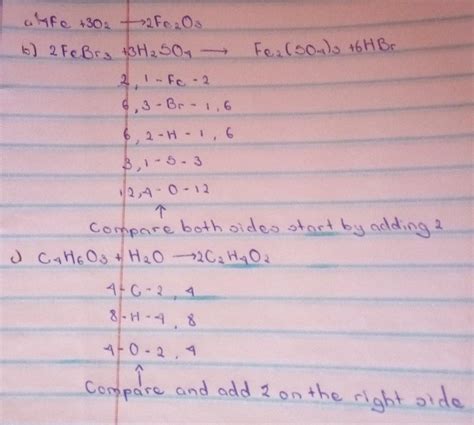 a) 4Fe +3O₂ → 2Fe₂O₃
b) 2FeBr₃ +3H₂SO₄ → Fe₂(SO₄)₃ +6HBr
2, 1 - Fe - 2
6, 3 - Br - 1, 6
6, 2 - H - 1, 6
3, 1 - S - 3
12, 4 - O - 12
↑
Compare both sides start by adding 2
c) C₄H₆O₃ + H₂O → 2C₂H₄O₂
4 - C - 2, 4
8 - H - 4, 8
4 - O - 2, 4
↑
Compare and add 2 on the right side